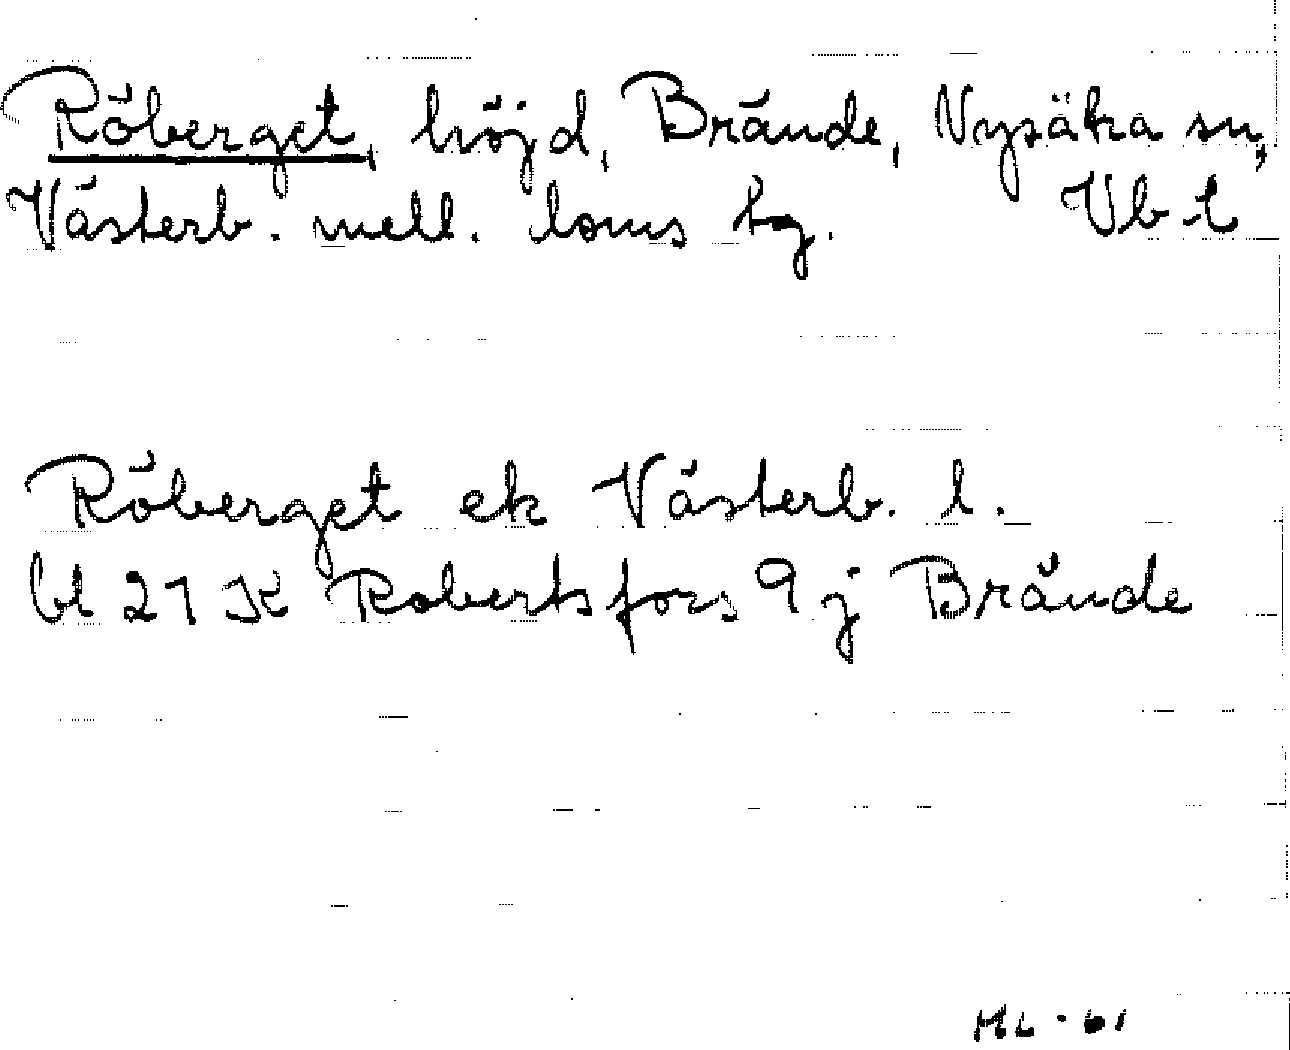 Röberget, höjd, Brände, Nysätra sn,
Västerb. mell. doms tg. Vb l
Röberget ek Västerb. l.
bl 21 K Robertsfors 9 j Brände
HL - 61